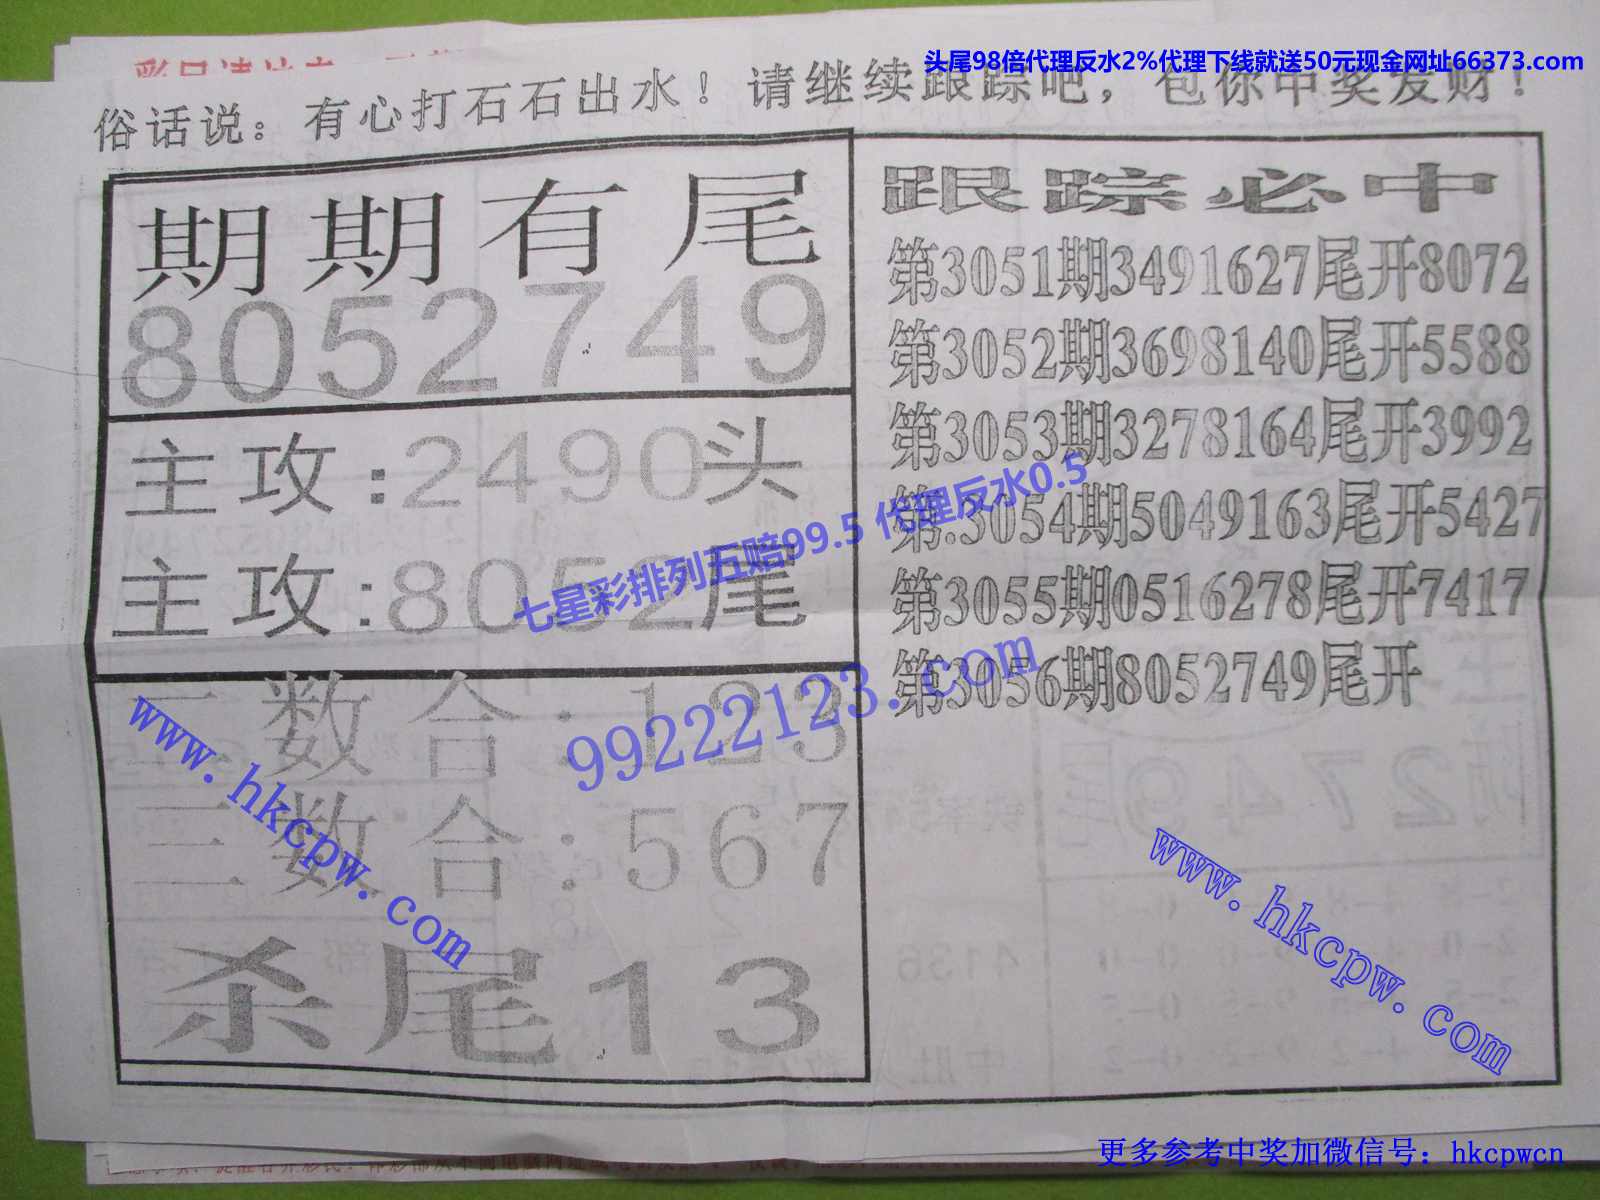 头尾98倍代理反水2%代理下线就送50元现金网址66373.com
俗话说：有心打石石出水！请继续跟踪吧，包你中奖发财！
期期有尾
8052749
主攻:2490头
主攻:8052尾
二数合:123
三数合:567
杀尾13
跟踪必中
第3051期3491627尾开8072
第3052期3698140尾开5588
第3053期3278164尾开3992
第.3054期5049163尾开5427
第3055期0516278尾开7417
第3056期8052749尾开
七星彩排列五赔99.5 代理反水0.5
99222123.com
www.hkcpw.com
www.hkcpw.com
更多参考中奖加微信号：hkcpwcn